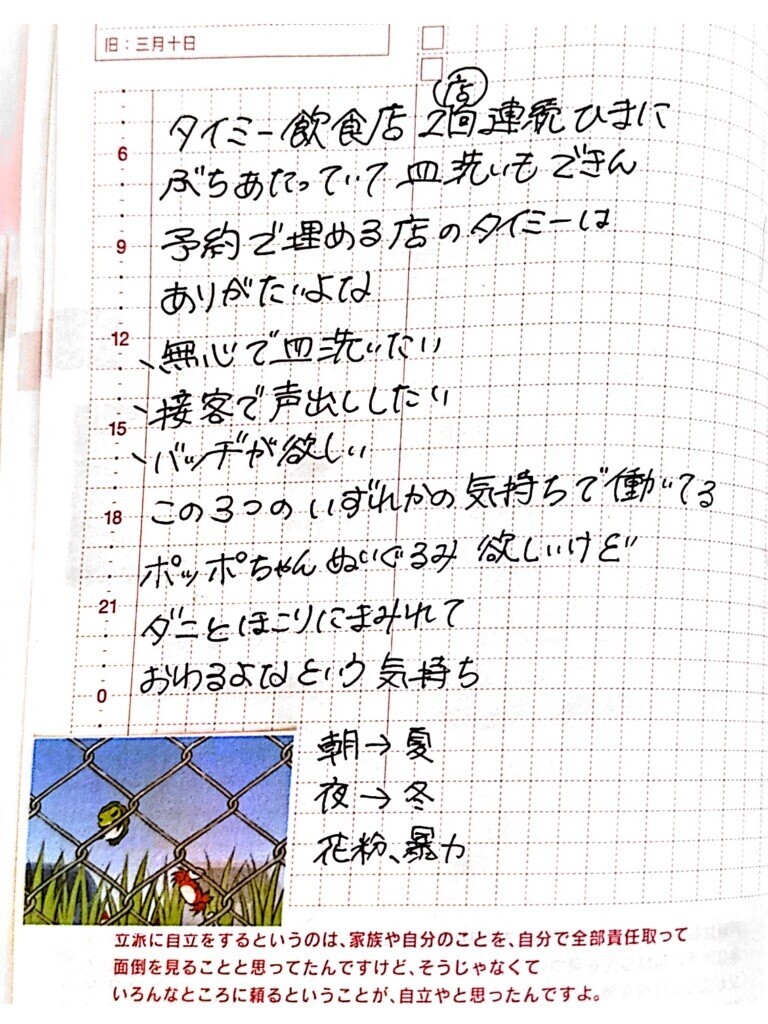 旧:三月十日
タイミー飲食店 2店連続ひまに
ぶちあたっていて 皿洗いもできん
予約で埋める店のタイミーは
ありがたいよな
、無心で皿洗いたい
、接客で声出ししたい
、バッヂが欲しい
この3つのいずれかの気持ちで働いてる
ポッポちゃんぬいぐるみ 欲しいけど
ダニとほこりにまみれて
おわるよなという気持ち
朝→夏
夜→冬
花粉、暴力
6
9
12
15
18
21
0
立派に自立をするというのは、家族や自分のことを、自分で全部責任取って
面倒を見ることと思ってたんですけど、そうじゃなくて
いろんなところに頼るということが、自立やと思ったんですよ。